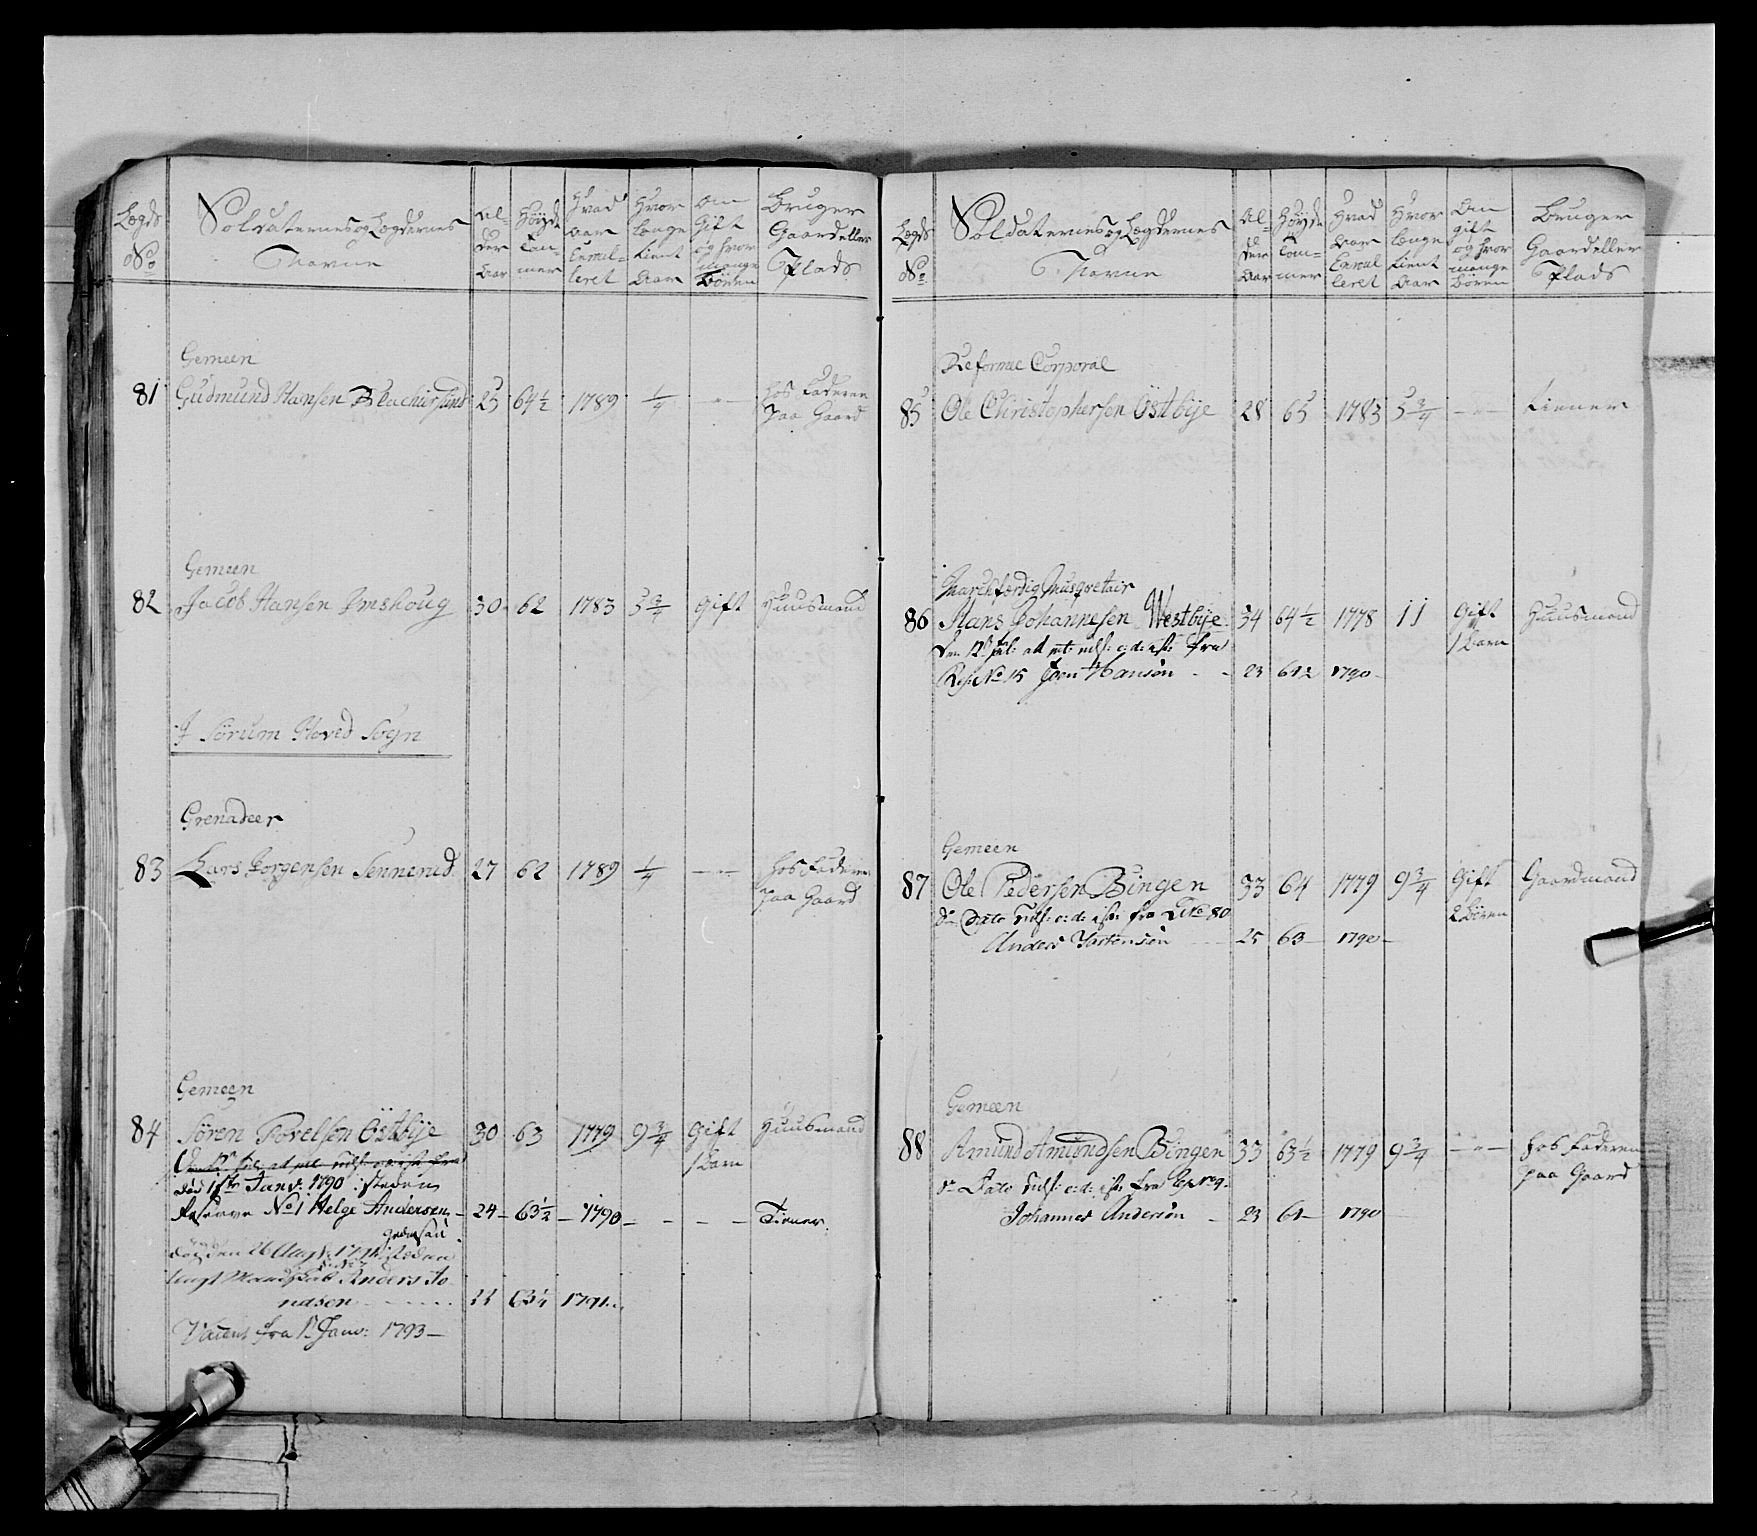 Lægds
No
Soldaternes og Lægdernes
Navne
Al-
der
Aar
Høyde
Tom-
mer
Hvad
Aar
Enrul-
leret
Hvor
længe
tient
Aar
Om
Gift
og hvor
mange
Børen
Bruger
Gaard eller
Plads
Gemeen
81 Gudmund Hansen 25 64½ 1789 ¼ - " - hos Faderen
paa Gaard
Gemeen
82 Jacob Hansen Imshoug 30 62 1783 5¾ Gift Huusmand
I Sørum Hoved Sogn
Grenadeer
83 Lars Jorgensen Sennerud 27 62 1789 ¼ - " - hos Faderen
paa Gaard
Gemeen
84 Søren Povelsen Östbye 30 63 1779 9¾ Gift Huusmand
1 Barn
død 1ste Janv: 1790 isteden
Reserve No 1 Helge Andersen 24 - 63½ - 1790 - - - - Tiener.
død den 26 Aug: 1791 isteden
lagt Mandskab Anders To
nesen 63¼ 1791
Vacant fra 1 Janv: 1793 -
Lægds
No
Soldaternes og Lægdernes
Navne
Al-
der
Aar
Høyde
Tom-
mer
Hvad
Aar
Enrul
leret
Hvor
længe
tient
Aar
Om
gift
og hvor
mange
Børen
Bruger
Gaard eller
Plads
Reforme Corporal
85 Ole Christophersen Östbye 28 65 1783 5¾ - " - tiener
Marchfærdig Musqvetair
86 Hans Johannesen Westbye 34 64½ 1778 11 Gift Huusmand
1 Barn
Res: No 15 Joen Hansøn - - 23 64½ 1790 -
Gemeen
87 Ole Pedersen Bingen 33 64 1779 9¾ Gift Gaardmand
2 Børen
Dato fra No 80
Anders 25 63 - 1790 -
Gemeen
88 Amund Amundsen Bingen 33 63½ 1779 9¾ - " - hos Faderen
paa Gaard
Dato fra
Johannes Andersøn - 23 64 - 1790